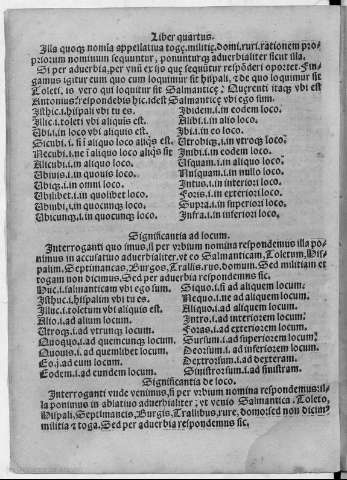 Liber quartus.
Illa quoq; nomĩa appellatiua togę.militię.domi.ruri.rationem pro
priorum nominum sequuntur, ponunturq; aduerbialiter sicut illa.
Si per aduerbia, per vnũ ex ijs que sequũtur respõderi oportet. Fin
gamus igitur eum quo cum loquimur sit hispali, & de quo loquimur sit
Toleti. is vero qui loquitur sit Salmanticę. Querenti itaq; vbi est
Antonius: respondebis hic.idest Salmanticę vbi ego sum.
Isthic.i.hispali vbi tu es.
Illic.i.toleti vbi aliquis est.
Ubi.i.in loco vbi aliquis est.
Sicubi.i. si ĩ aliquo loco aliq̃s est.
Necubi.i.ne ĩ aliquo loco aliq̃s sit
Alicubi.i.in aliquo loco.
Ubiuis.i.in quouis loco.
Ubiq;.i.in omni loco.
Ubilibet.i.in quolibet loco.
Ubiubi.i.in quocunq; loco.
Ubicunq;.i.in quocunq; loco.
Ibidem.i.in eodem loco.
Alibi.i.in alio loco.
Ibi.i.in eo loco.
Utrobiq;.i.in vtroq; loco.
Inibi.i.in eodem loco.
Usquam.i.in aliquo loco.
Nusquam.i.in nullo loco.
Intus.i.in interiori loco.
Foris.i.in exteriori loco.
Supra.i.in superiori loco.
Infra.i.in inferiori loco.
Significantia ad locum.
Interroganti quo imus, si per vrbium nomina respondemus illa po
nimus in accusatiuo aduerbialiter. vt eo Salmanticam, Toletum, His
palim, Septimancas, Burgos, Trallis, rus, domum. Sed militiam et
togam non dicimus. Sed per aduerbia respondemus sic.
Huc.i.salmanticam vbi ego sum.
Isthuc.i.hispalim vbi tu es.
Illuc.i.toletum vbi aliquis est.
Alio.i.ad alium locum.
Utroq;.i.ad vtrunq; locum.
Quoquo.i.ad quemcunq; locum.
Quouis.i.ad quemlibet locum.
Eo.i.ad eum locum.
Eodem.i.ad eundem locum.
Siquo.i.si ad aliquem locum.
Nequo.i.ne ad aliquem locum.
Aliquo.i.ad aliquem locum.
Intro.i.ad interiorem locum.
Foras.i.ad exteriorem locum.
Sursum.i.ad superiorem locum.
Deorsum.i.ad inferiorem locum.
Dextrorsum.i.ad dexteram.
Sinistrorsum.i.ad sinistram.
Significantia de loco.
Interroganti vnde venimus, si per vrbium nomina respondemus: il
la ponimus in ablatiuo aduerbialiter: vt venio Salmantica. Toleto,
Hispali, Septimancis, Burgis, Trallibus, rure, domo: sed non dicim⁹
militia & toga. Sed per aduerbia respondemus sic.